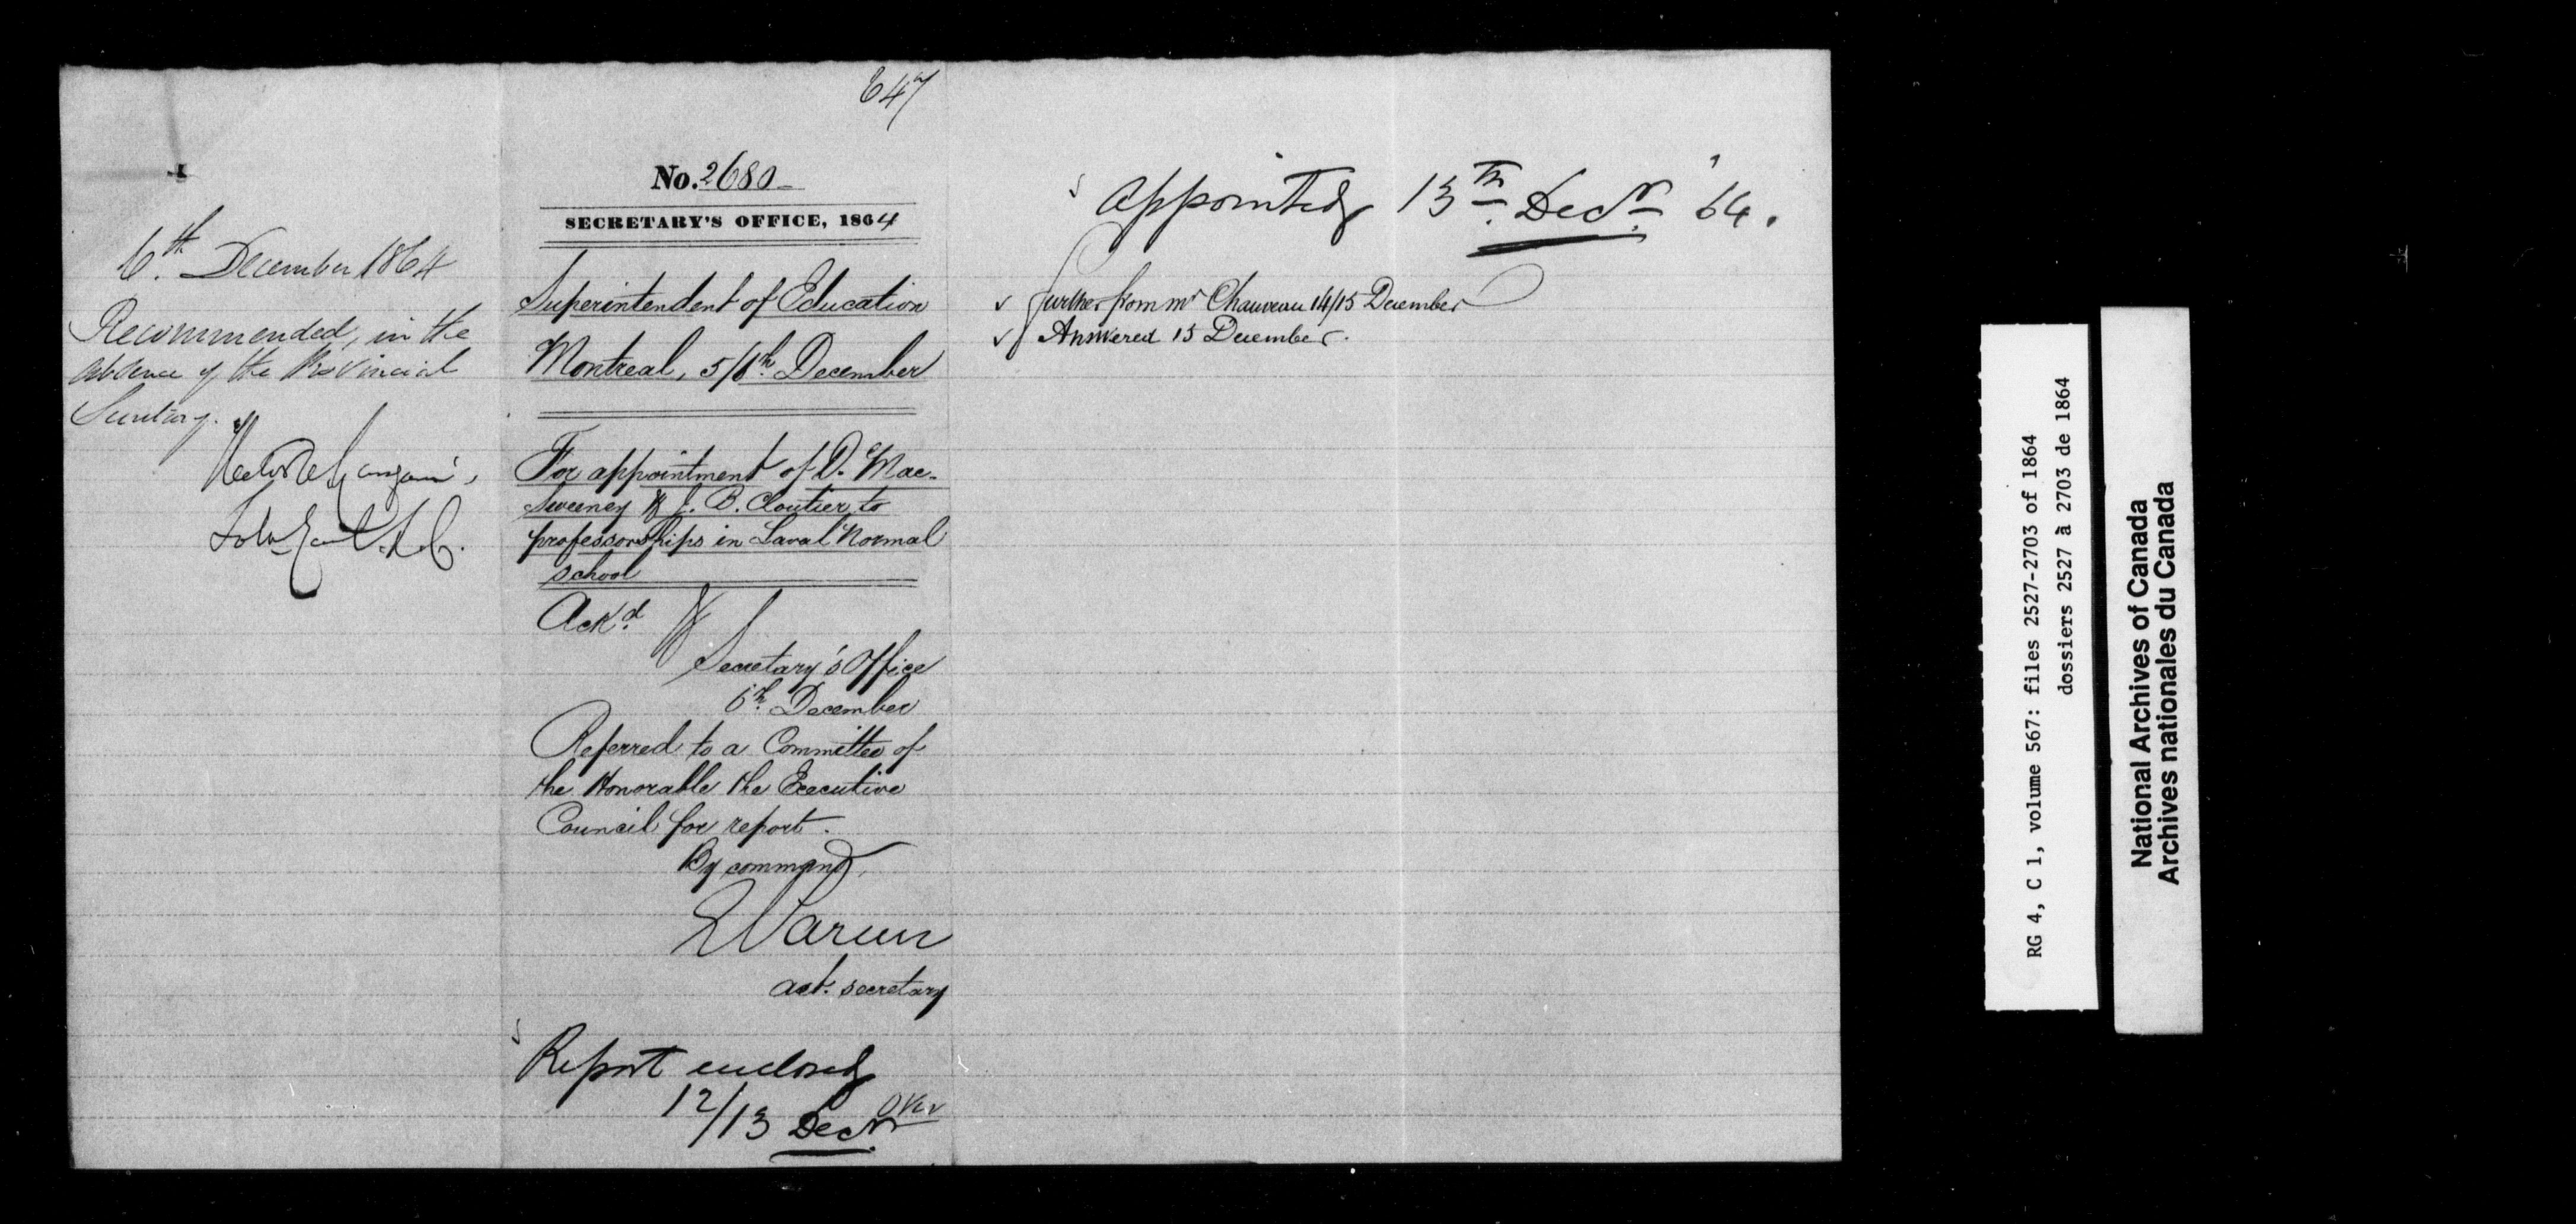 647
6th. December 1864
Recommended, in the
absence of the Provincial
Secretary.
Hector Langevin,
Sol. Genl. L. C.
No. 2680
SECRETARY'S OFFICE, 1864
Superintendent of Education
Montreal, 5/6th. December
For appointment of D. Mac-
Sweeney & J. B. Cloutier to
professorships in Laval Normal
school
Ackd.
Secretary's Office
6th. December
Referred to a Committee of
the Honorable the Executive
Council for report.
By command,
E Parent
ast. secretary
Report enclosed
12/13 Decr.
Over
appointed 13th. Decr. '64.
further from mr Chauveau 14/15 December
Answered 15 December.
RG 4, C 1, volume 567: files 2527-2703 of 1864
dossiers 2527 à 2703 de 1864
National Archives of Canada
Archives nationales du Canada